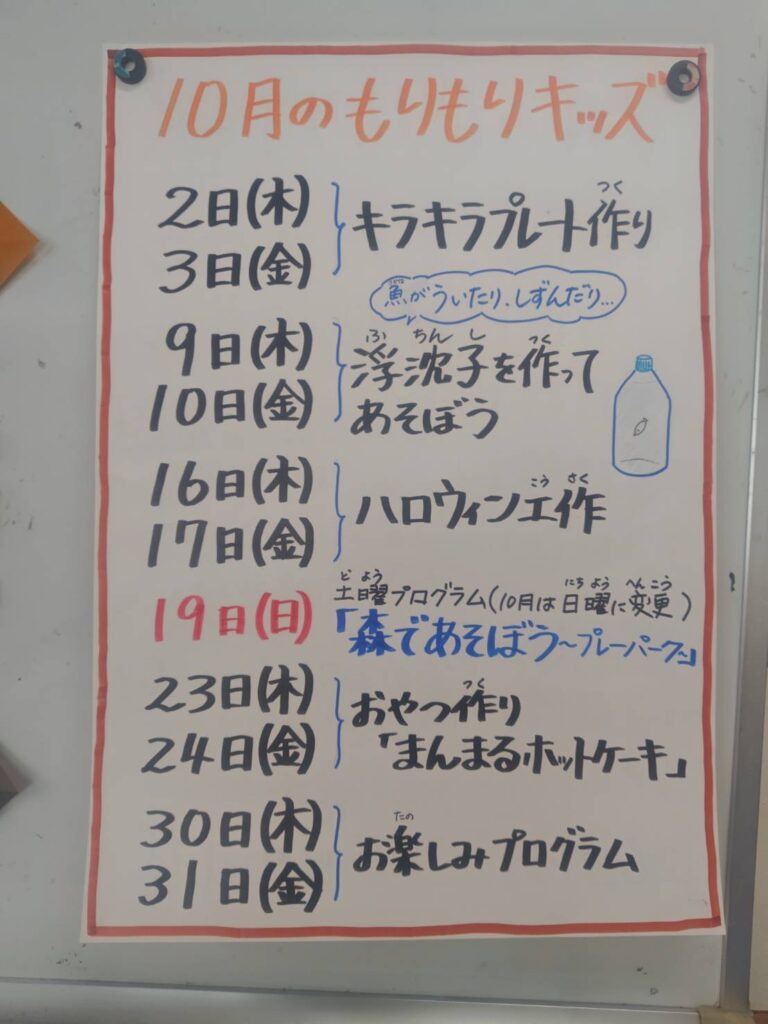 10月のもりもりキッズ
2日(木)
3日(金)
つく
キラキラプレート作り
さかな
魚がういたり、しずんだり…
9日(木)
10日(金)
ふ ちん し つく
浮沈子を作って
あそぼう
16日(木)
17日(金)
こう さく
ハロウィン工作
19日(日)
ど よう にち よう へん こう
土曜プログラム(10月は日曜に変更)
「森であそぼう～プレーパーク～」
23日(木)
24日(金)
つく
おやつ作り
「まんまるホットケーキ」
30日(木)
31日(金)
たの
お楽しみプログラム